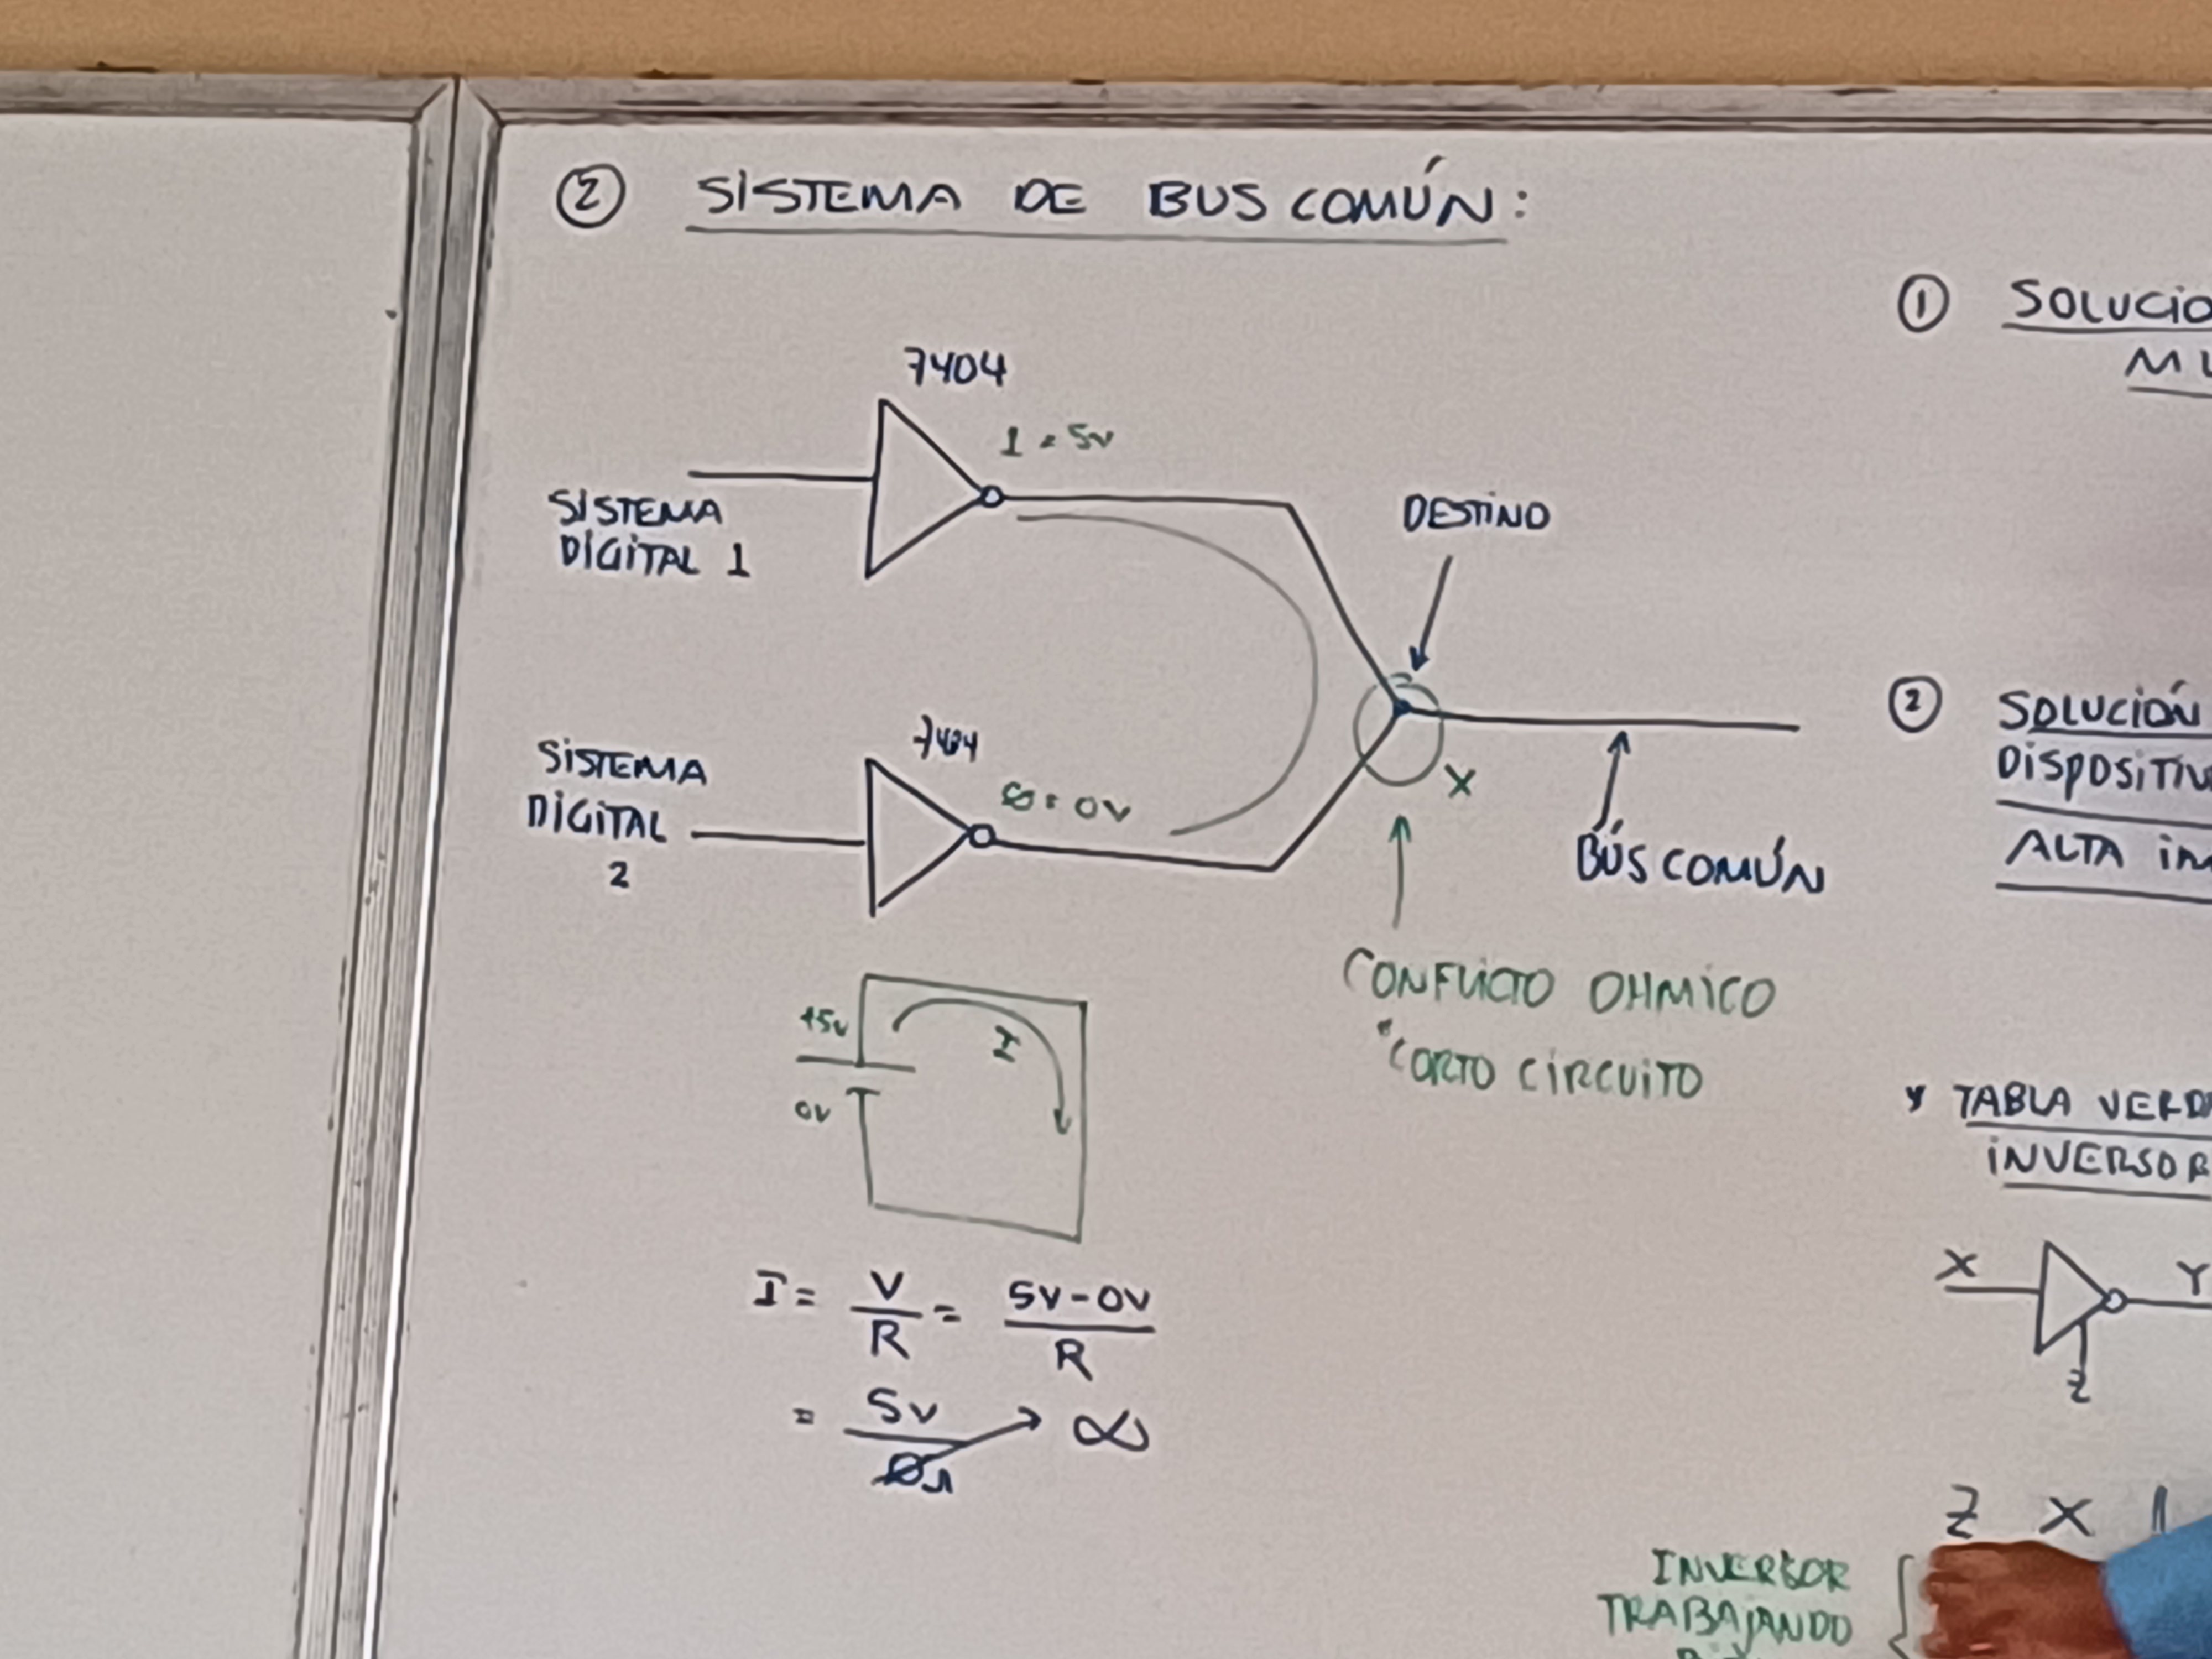 ② SISTEMA DE BUS COMÚN:
7404
1 = 5V
SISTEMA
DIGITAL 1
DESTINO
7404
SISTEMA
DIGITAL
2
0 = 0V
X
BÚS COMÚN
CONFLICTO OHMICO
"CORTO CIRCUITO
+5V
I
0V
I = V/R = 5V-0V/R
= 5V/0Ω → ∞
①
② SOLUCIÓN
ALTA
TABLA
INVERSOR
X Y
Z
Z X
INVERSOR
TRABAJANDO